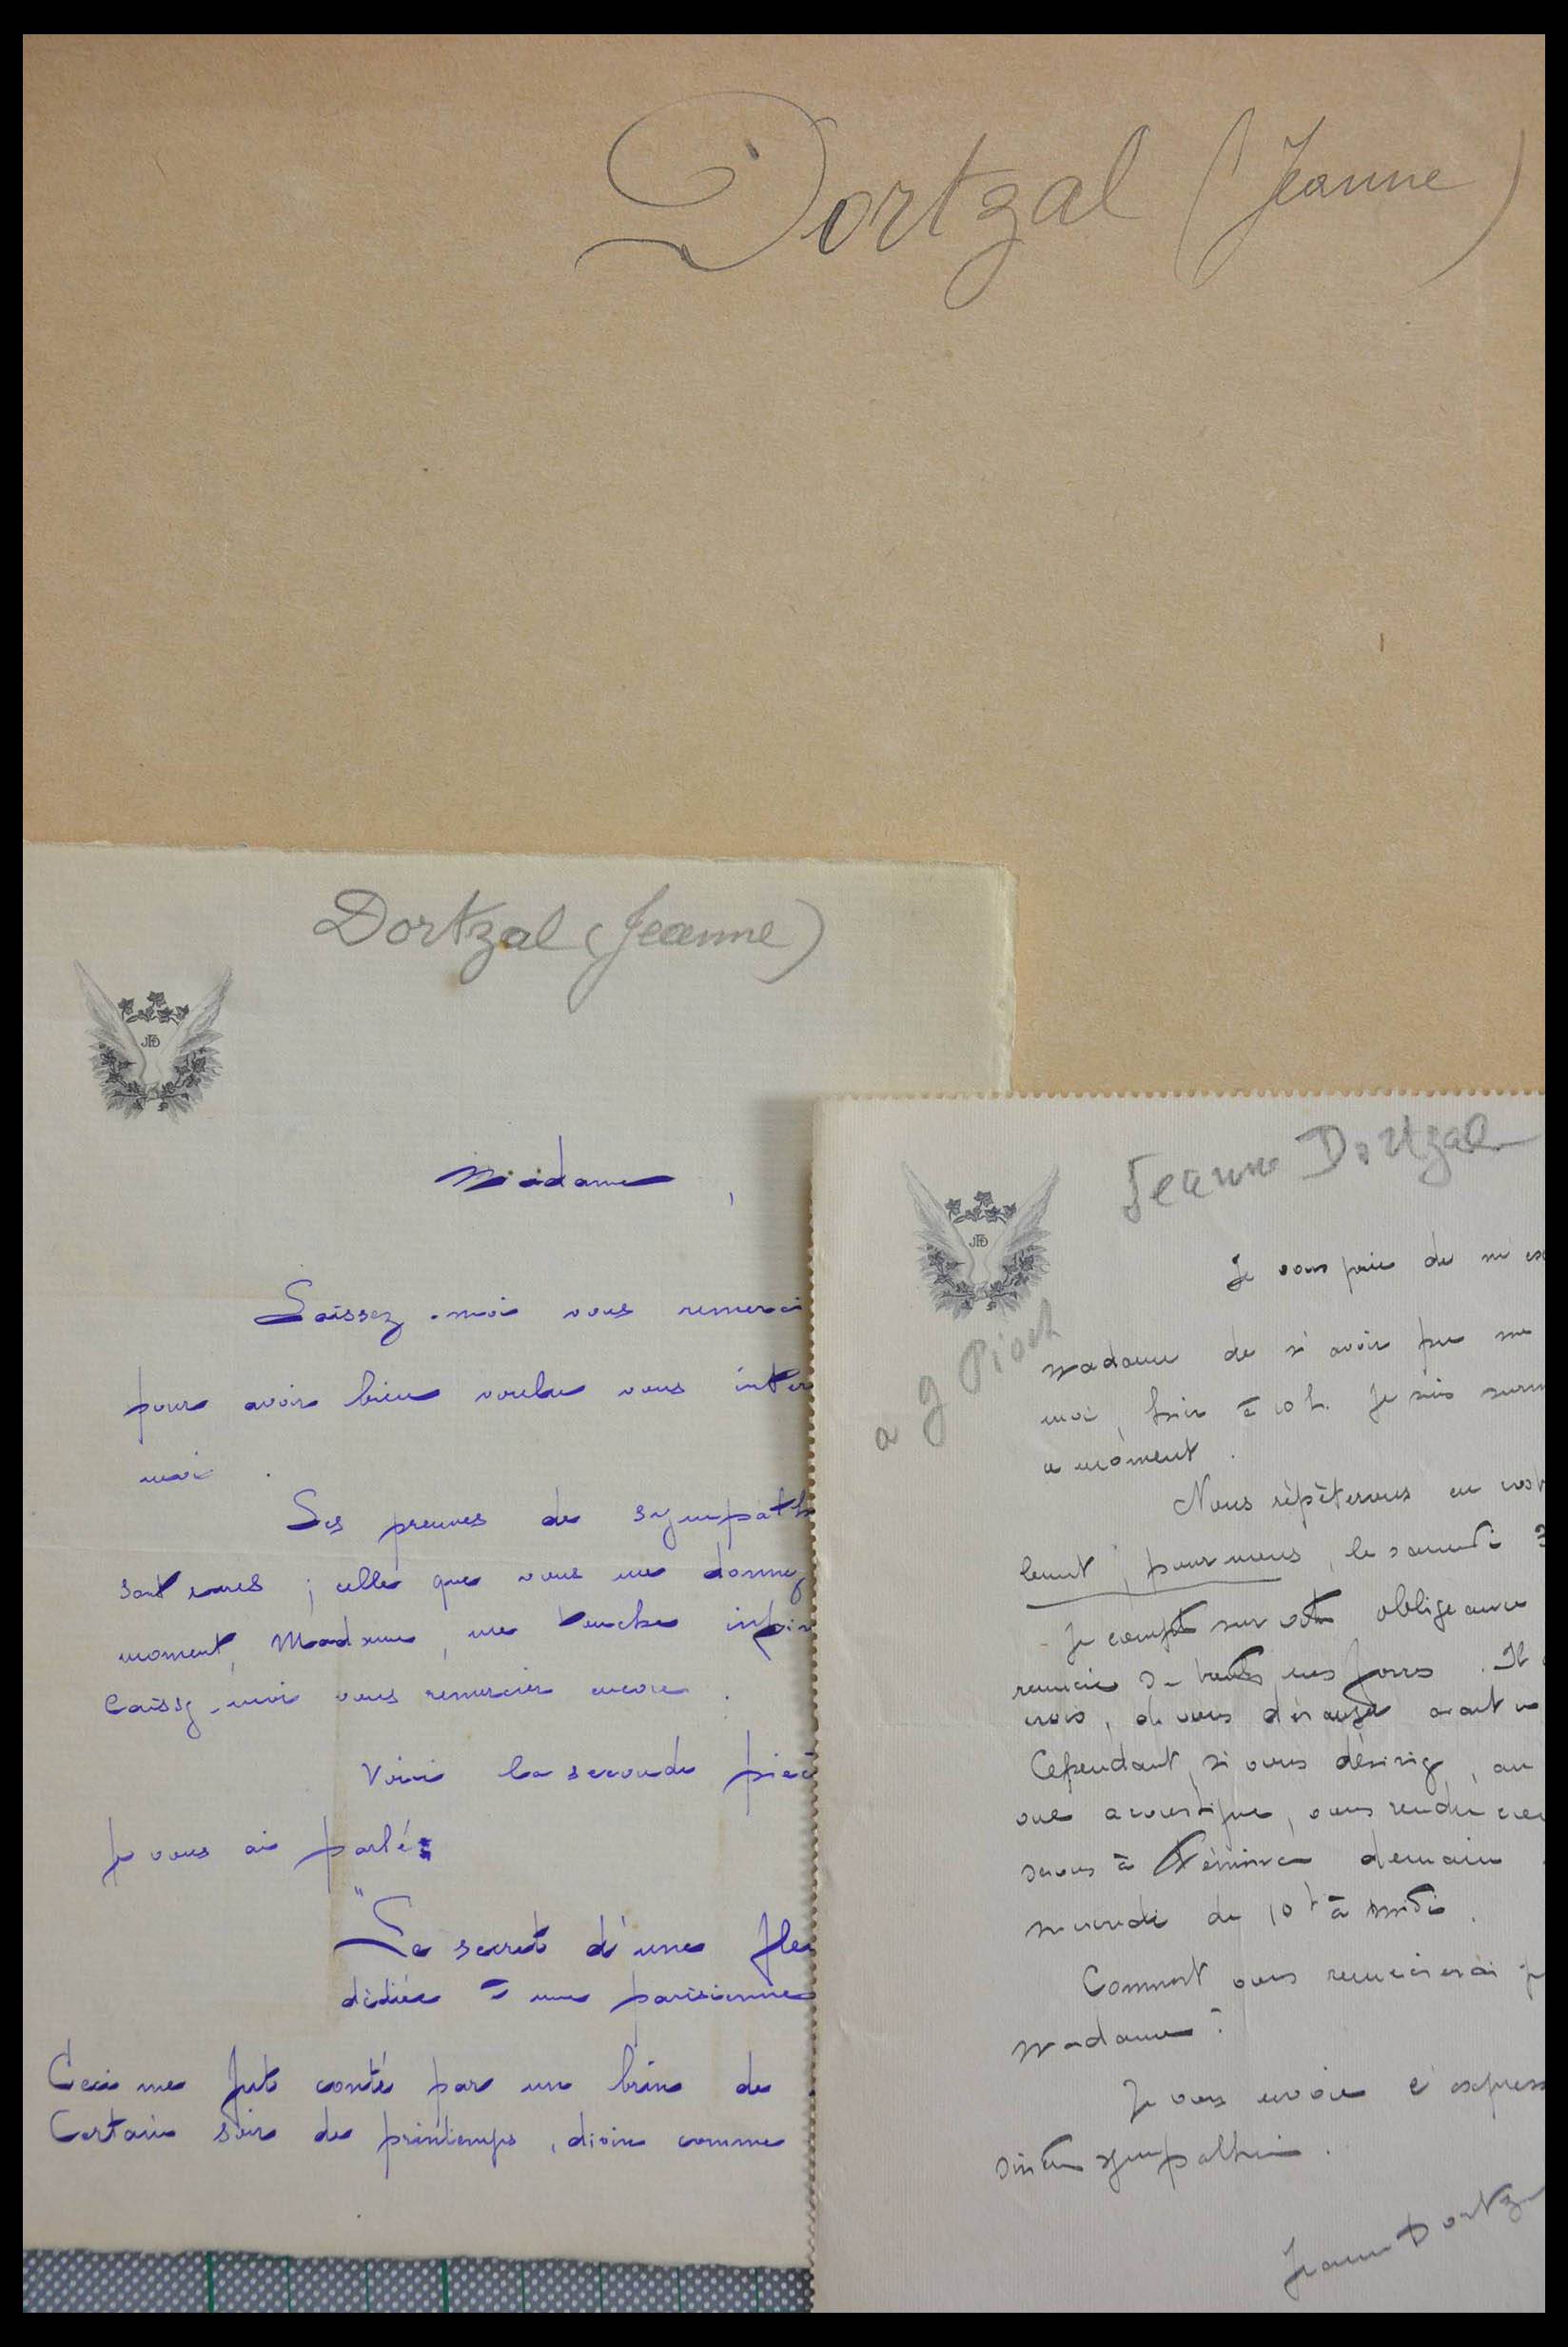 Dortzal (Jeanne)
Dortzal (Jeanne)
JFD
Madame,
Laissez-moi vous
pour avoir bien voulu vous
moi.
Les preuves de
sont rares ; celle que vous me donnez
moment, Madame, me touche
Laissez-moi vous remercier encore.
Voici la seconde
je vous ai parlé :
"Le secret d'une
dédiée à une parisienne
Ceci me fut conté par un brin de
Certain soir de printemps, comme
Jeanne Dortzal
JFD
a g Pioch
Je vous prie de
madame de n'avoir pu me
moi, hier à 10 h. Je suis
ce moment.
Nous répéterons en
pour nous, le samedi
Je compte sur votre obligeance
remercie de toutes mes forces. Il
crois, de vous déranger avant
Cependant, si vous désirez, au
vue acoustique, vous rendre
à Fémina demain
mercredi de 10 h à midi.
Comment vous remercierai-je
Madame ?
Je vous envoie
sympathie.
Jeanne